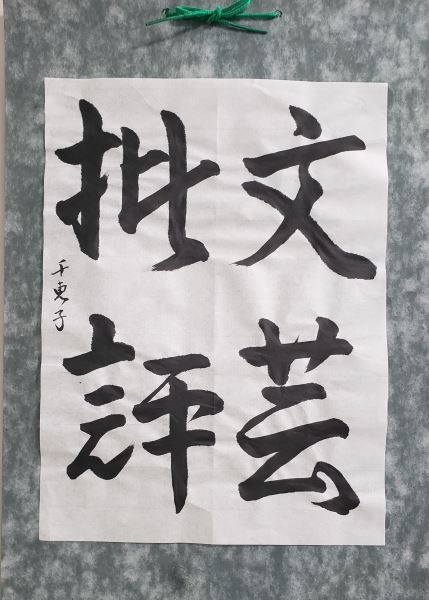 文芸
批評
千恵子